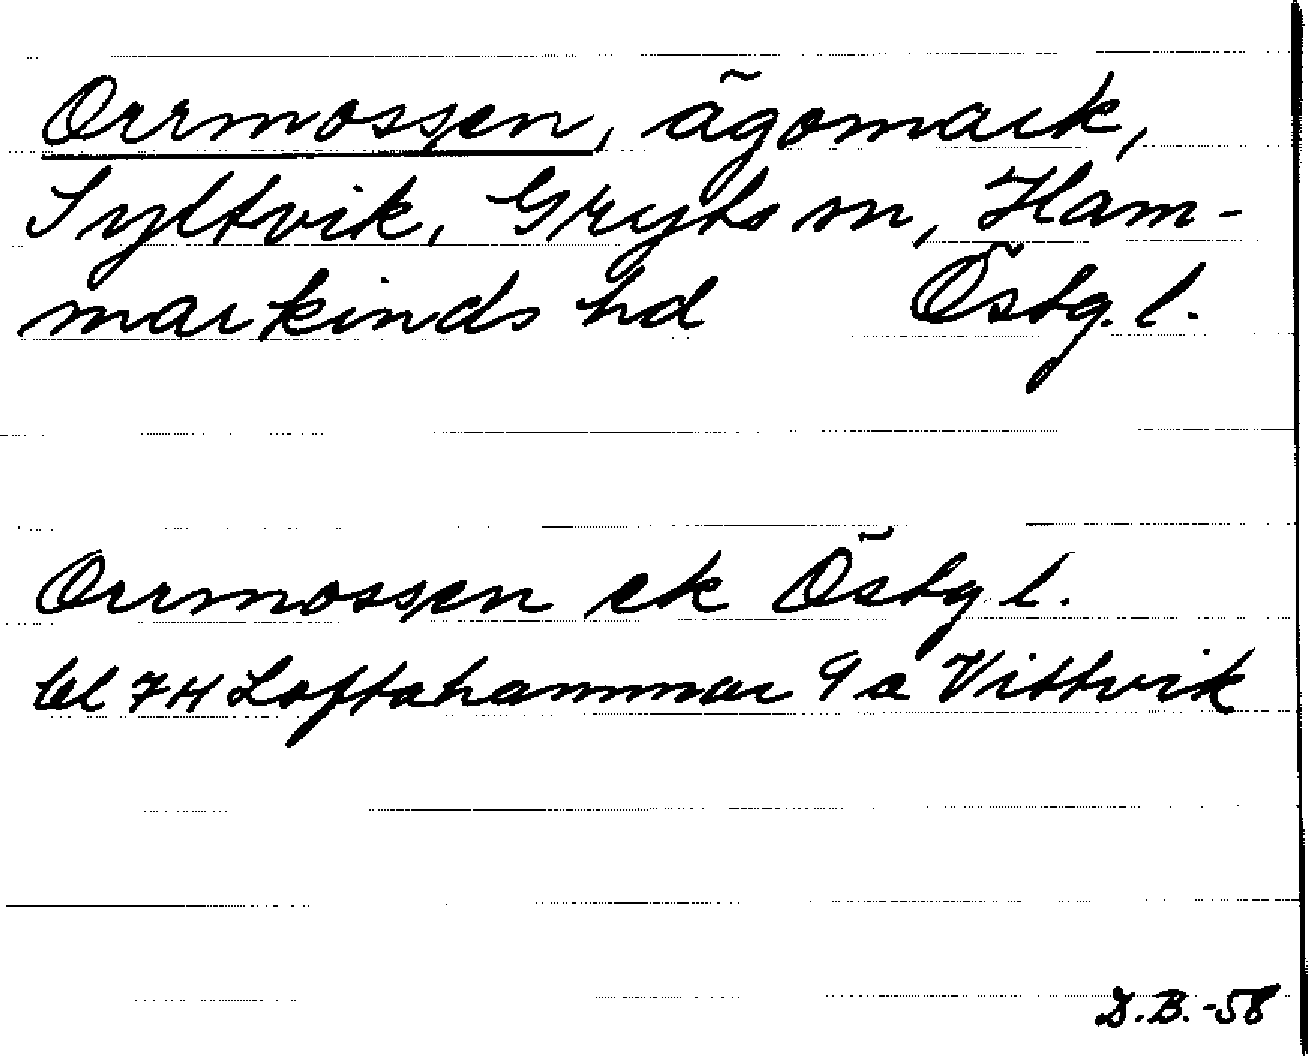 Orrmossen, ägomark,
Syltvik, Gryts sn, Ham-
markinds hd Östg. l.
Orrmossen ek Östg l.
bl 7H Loftahammar 9 a Vittvik
D.B.-58